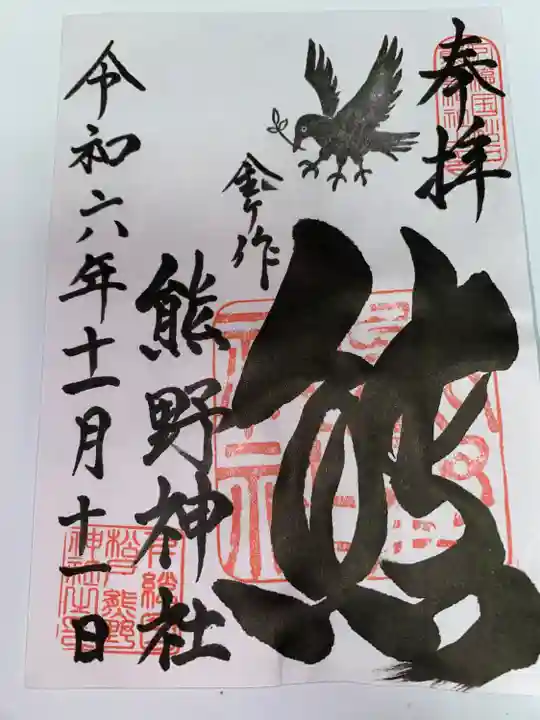 奉拝
熊
金ケ作
熊野神社
令和六年十一月十一日